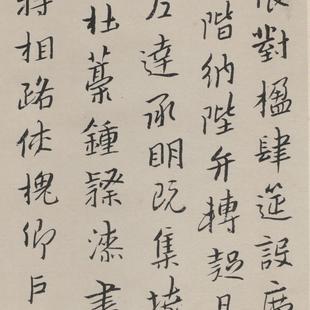 對楹肆筵設席
階納陛弁轉疑
左達承明既集墳
杜藁鍾隸漆書
將相路俠槐卿戶